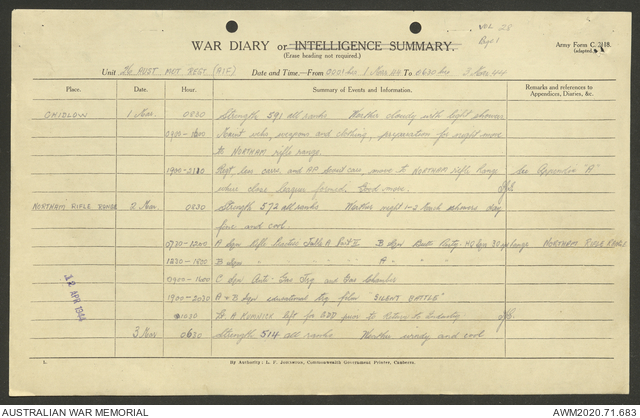 VOL 28
Page 1
WAR DIARY or INTELLIGENCE SUMMARY.
(Erase heading not required.)
Army Form C. 2118.
(adapted)
Unit The AUST MOT REGT (AIF) Date and Time.—From 0001 hrs 1 Mar 44 To 0630 hrs 3 Mar 44
Place. Date. Hour. Summary of Events and Information. Remarks and references to
Appendices, Diaries, &c.
CHIDLOW 1 Mar. 0630 Strength 591 all ranks Weather cloudy with light showers
Maint vehs, weapons and clothing, preparation for night move
to NORTHAM rifle range.
1900-2110 Regt, less carrs, and AP scout cars move to NORTHAM Rifle Range See Appendix "A"
where close leaguer formed. Good move.
NORTHAM RIFLE RANGE 2 Mar. 0630 Strength 572 all ranks Weather night 1-2 March showers day
fine and cool.
0730-1200 A Sqn Rifle Practices Table A Part II B Sqn Butts Party range NORTHAM RIFLE RANGE
1230-1600 B Sqn " " " A "
0900-1600 C Sqn Anti-Gas Trg and Gas Chamber
1900-2030 A & B Sqn educational trg film "SILENT BATTLE"
1030 Lt. A left for GDD prior to Return to Industry
3 Mar 0630 Strength 514 all ranks Weather windy and cool
12 APR 1944
By Authority: L. F. Johnston, Commonwealth Government Printer, Canberra.
AUSTRALIAN WAR MEMORIAL AWM2020.71.683